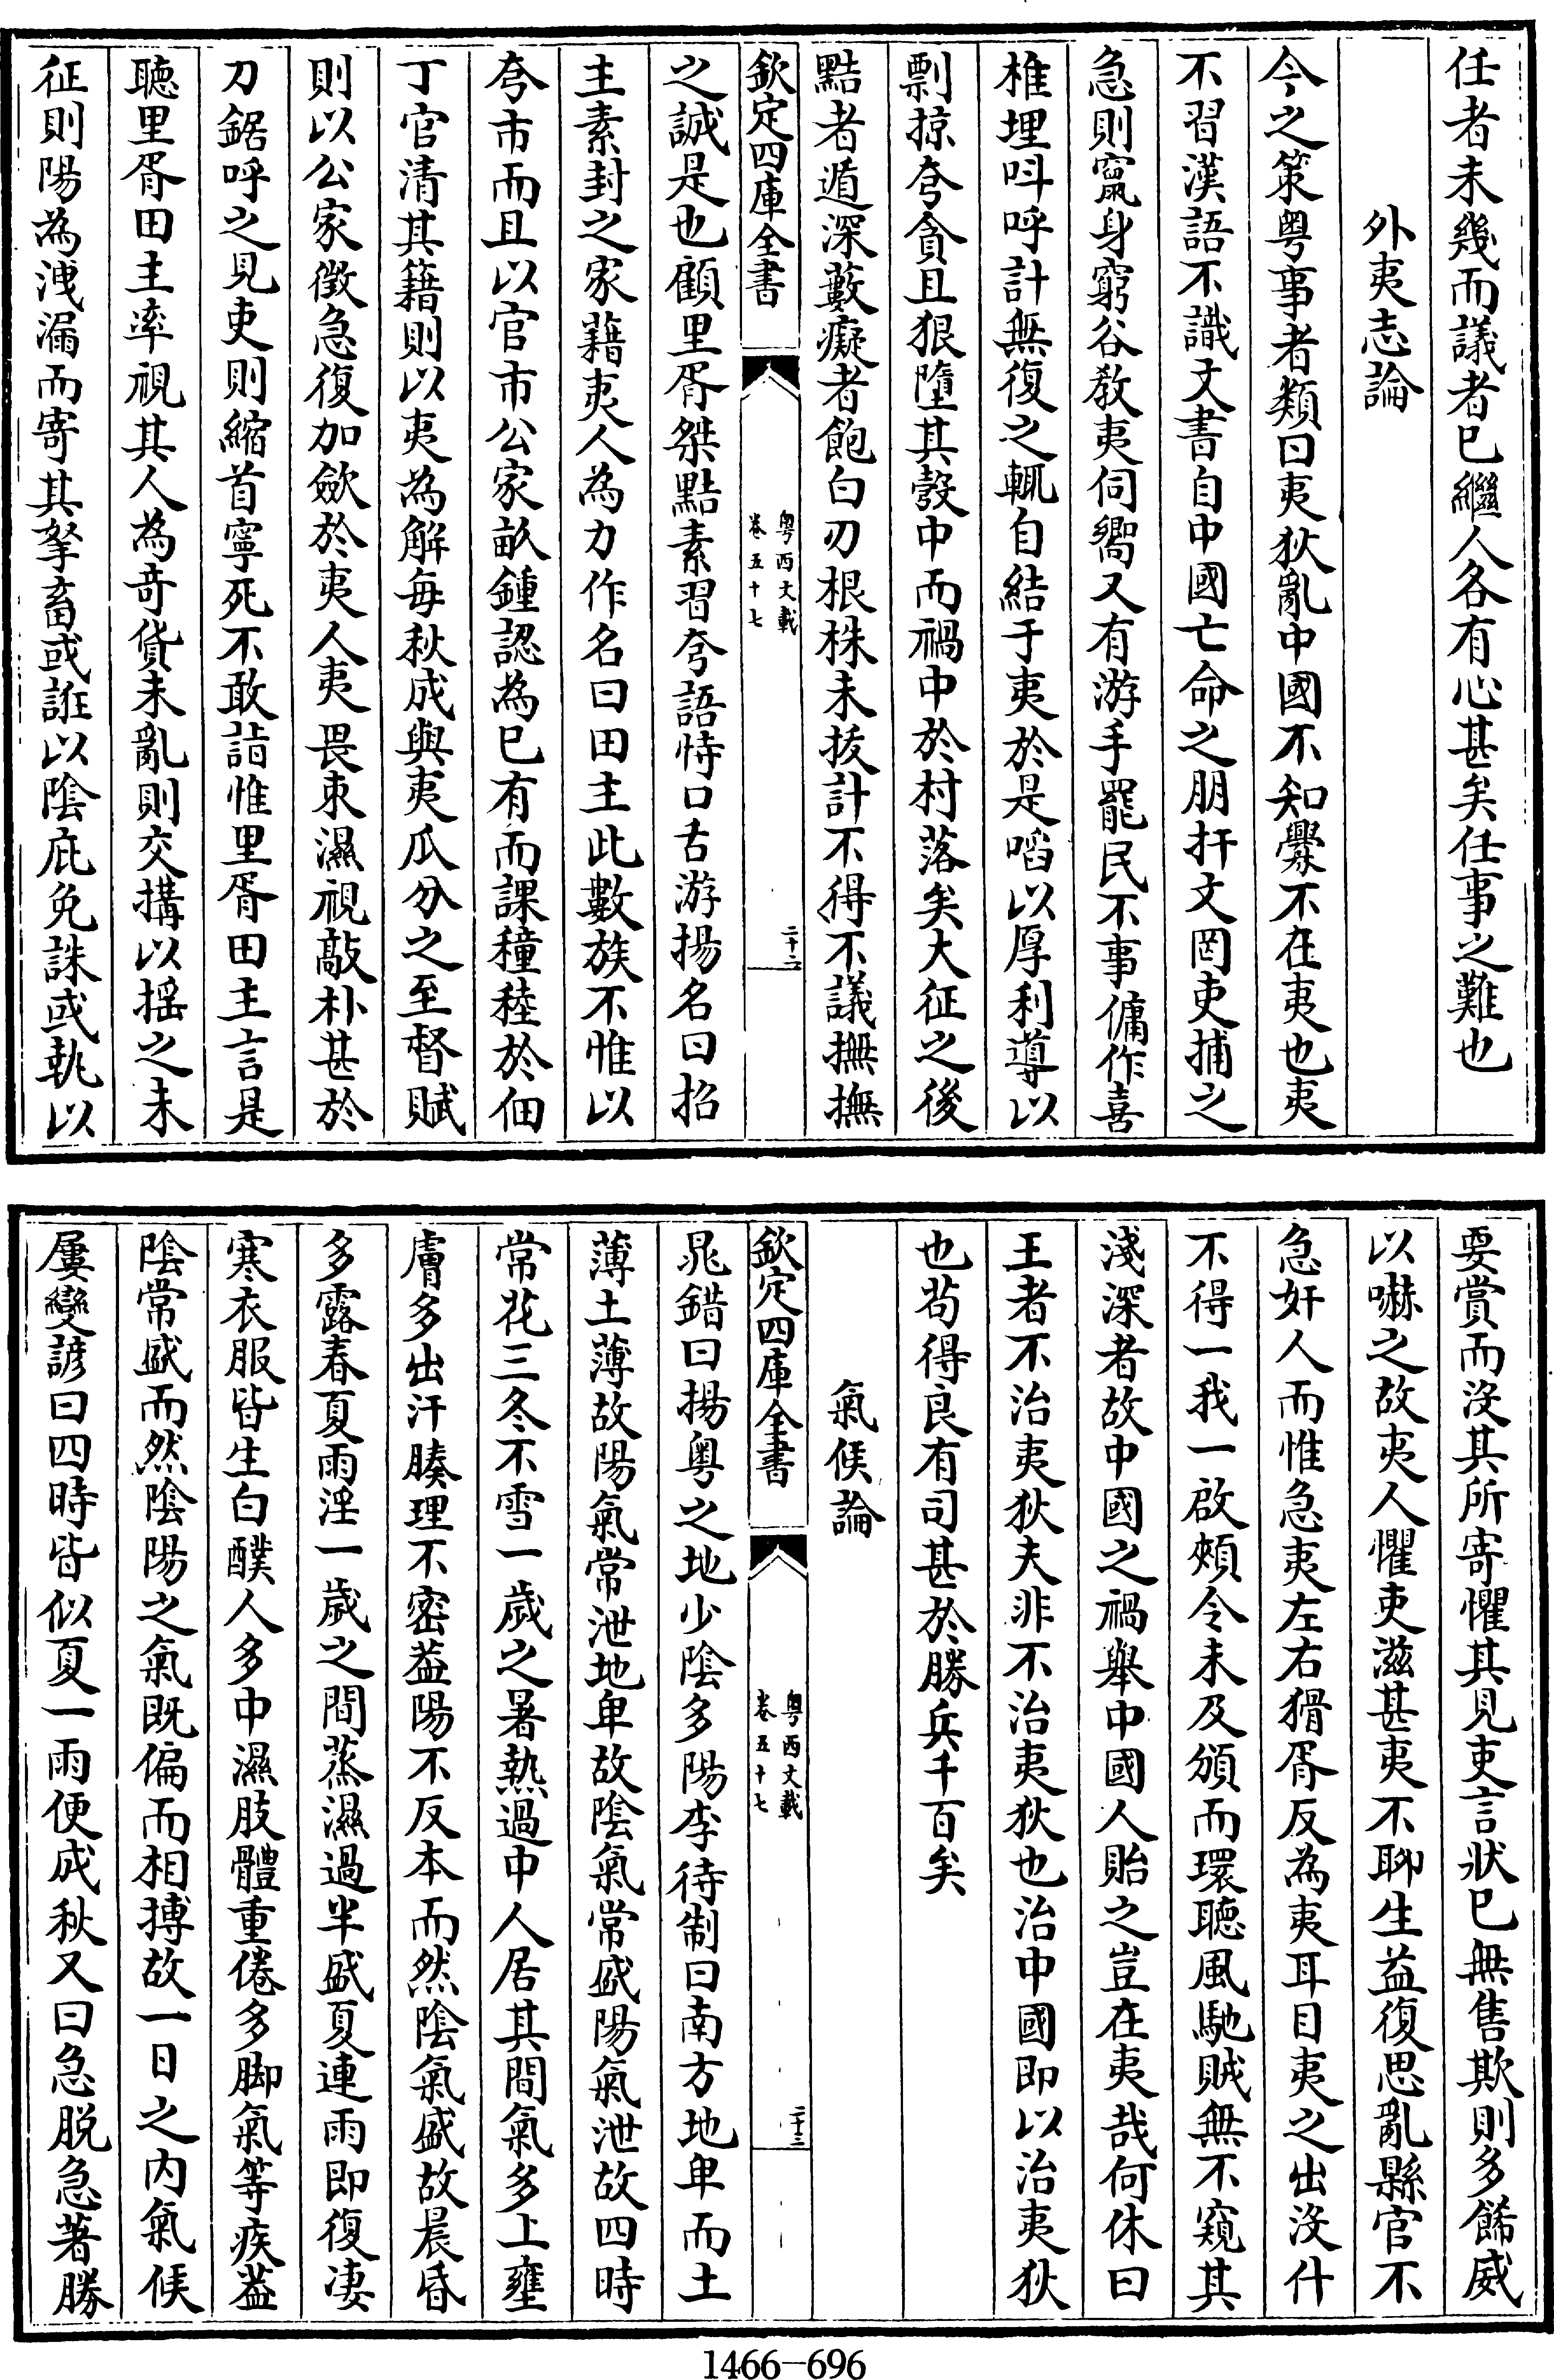 任者未幾而議者已繼人各有心甚矣任事之難也
外夷志論
今之策粤事者類曰夷狄亂中國不知釁不在夷也夷
不習漢語不識文書自中國亡命之朋扞文罔吏捕之
急則竄身窮谷教夷伺嚮又有游手罷民不事傭作喜
椎埋呌呼計無復之輒自結于夷於是啗以厚利導以
剽掠夸貪且狠墮其彀中而禍中於村落矣大征之後
黠者遁深藪癡者飽白刃根株未拔計不得不議撫撫
欽定四庫全書
粤西文載
卷五十七
二十二
之誠是也顧里胥桀黠素習夸語恃口舌游揚名曰招
主素封之家藉夷人為力作名曰田主此數族不惟以
夸市而且以官市公家畝鍾認為已有而課穜稑於佃
丁官清其籍則以夷為解每秋成與夷瓜分之至督賦
則以公家徵急復加歛於夷人夷畏束濕視敲朴甚於
刀鋸呼之見吏則縮首寧死不敢詣惟里胥田主言是
聽里胥田主率視其人為竒貨未亂則交搆以揺之未
征則陽為洩漏而寄其孥畜或誑以隂庇免誅或執以
要賞而沒其所寄懼其見吏言狀已無售欺則多餙威
以嚇之故夷人懼吏滋甚夷不聊生益復思亂縣官不
急奸人而惟急夷左右猾胥反為夷耳目夷之出沒什
不得一我一啟頰令未及頒而環聽風馳賊無不窺其
淺深者故中國之禍舉中國人貽之豈在夷哉何休曰
王者不治夷狄夫非不治夷狄也治中國即以治夷狄
也茍得良有司甚於勝兵千百矣
氣候論
欽定四庫全書
粤西文載
卷五十七
二十三
晁錯曰揚粤之地少隂多陽李待制曰南方地卑而土
薄土薄故陽氣常泄地卑故陰氣常盛陽氣泄故四時
常花三冬不雪一歲之暑熱過中人居其間氣多上壅
膚多出汗腠理不密葢陽不反本而然陰氣盛故晨昏
多露春夏雨淫一歲之間蒸濕過半盛夏連雨即復凄
寒衣服皆生白醭人多中濕肢體重倦多脚氣等疾葢
隂常盛而然隂陽之氣既偏而相搏故一日之内氣候
屢變諺曰四時皆似夏一雨便成秋又曰急脱急著勝
1466-696